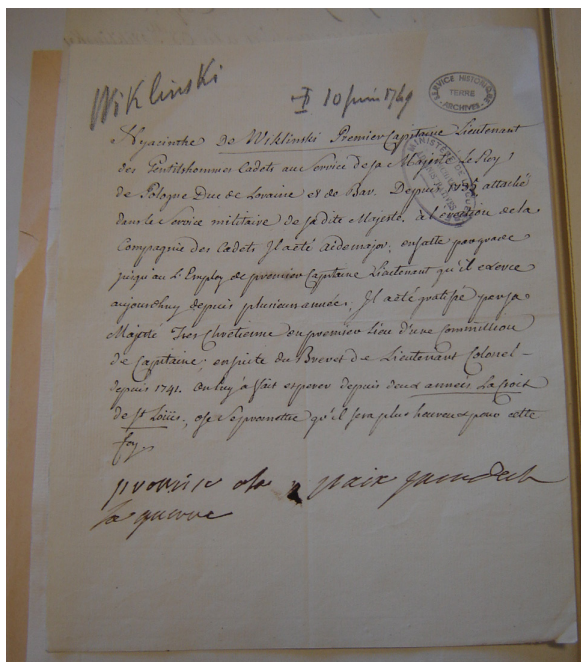 Wiklinski
10 juin 1749
SERVICE HISTORIQUE
TERRE
ARCHIVES
MINISTÈRE DE LA GUERRE
Hyacinthe De Wiklinski Premier Capitaine Lieutenant
des Gentilshommes Cadets au Service de sa Majesté Le Roy
de Pologne Duc de Loraine et de Bar. Depuis attaché
dans le Service militaire de sadite Majesté, a l'erection de la
Compagnie des Cadets Il a eté Aidemajor, ensuite par grade
jusqu'au L'Employ de premier Capitaine Lieutenant qu'il exerce
aujourdhuy depuis plusieurs année, Il a eté gratifié par sa
Majesté Tres Chrétienne en premier Lieu d'une Commission
de Capitaine, ensuite du Brevet de Lieutenant Colonel
depuis 1741. On luy a fait esperer depuis deux années La Croix
de St Loüis, ose se promettre qu'il sera plus heureux pour cette
foy
promise a la paix
la guerre